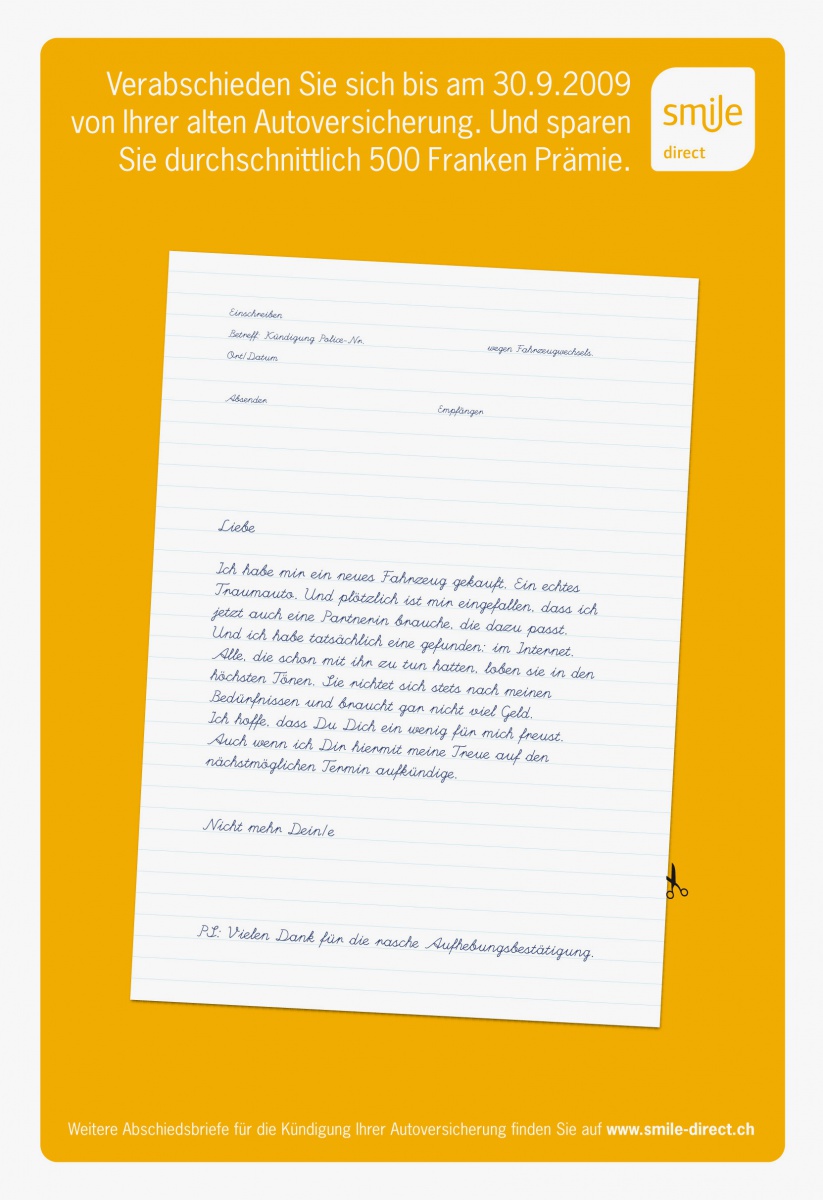 Verabschieden Sie sich bis am 30.9.2009
von Ihrer alten Autoversicherung. Und sparen
Sie durchschnittlich 500 Franken Prämie.
smile
direct
Einschreiben
Betreff: Kündigung Police-Nr. wegen Fahrzeugwechsels.
Ort/Datum
Absender Empfänger
Liebe
Ich habe mir ein neues Fahrzeug gekauft. Ein echtes
Traumauto. Und plötzlich ist mir eingefallen, dass ich
jetzt auch eine Partnerin brauche, die dazu passt.
Und ich habe tatsächlich eine gefunden: im Internet.
Alle, die schon mit ihr zu tun hatten, loben sie in den
höchsten Tönen. Sie richtet sich stets nach meinen
Bedürfnissen und braucht gar nicht viel Geld.
Ich hoffe, dass Du Dich ein wenig für mich freust.
Auch wenn ich Dir hiermit meine Treue auf den
nächstmöglichen Termin aufkündige.
Nicht mehr Dein/e
PS: Vielen Dank für die rasche Aufhebungsbestätigung.
Weitere Abschiedsbriefe für die Kündigung Ihrer Autoversicherung finden Sie auf www.smile-direct.ch